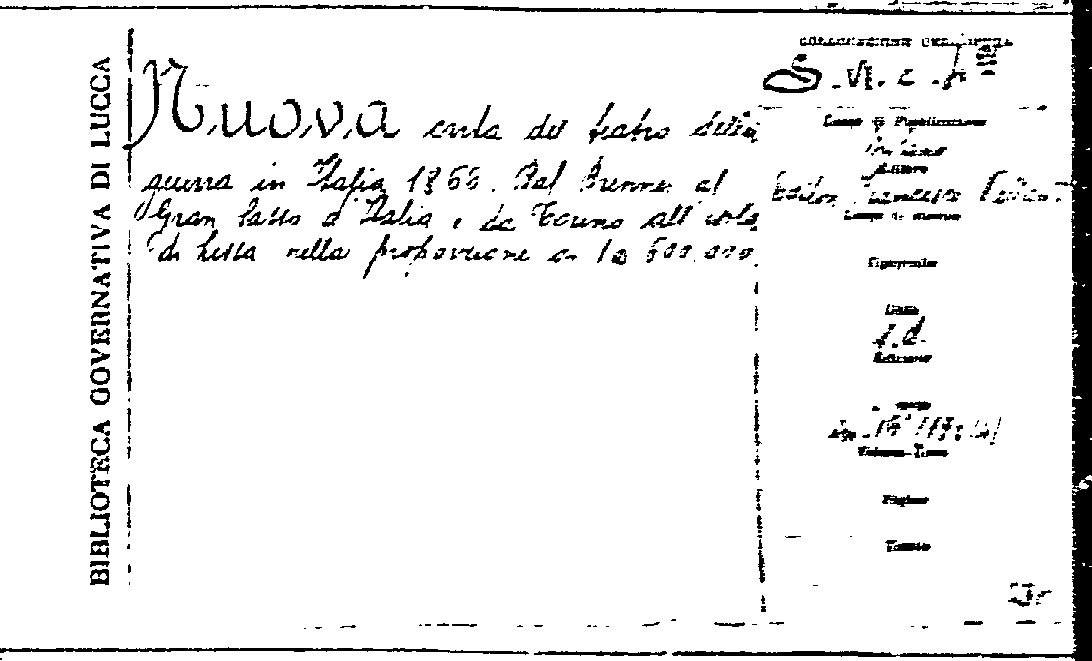 BIBLIOTECA GOVERNATIVA DI LUCCA
Nuova carta del teatro della
guerra in Italia 1866. Dal Brenner al
Gran Sasso d'Italia e da Torino all'isola
di Lissa nella proporzione di 1 a 600.000
COLLOCAZIONE
S. VI. c.
Luogo di Pubblicazione
Editore
Francesco
Luogo di stampa
Tipografo
Data
s.d.
Edizione
Volume-Tomo
Pagine
Tavole